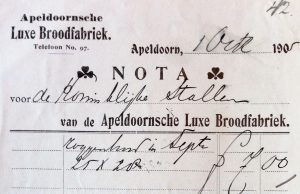 42
Apeldoornsche
Luxe Broodfabriek.
Telefoon No. 97.
Apeldoorn, 1 Oct 190
NOTA
voor de Koninklijke Stallen
van de Apeldoornsche Luxe Broodfabriek.
Roggenbrood in Sept
25 X 28 f 7,00